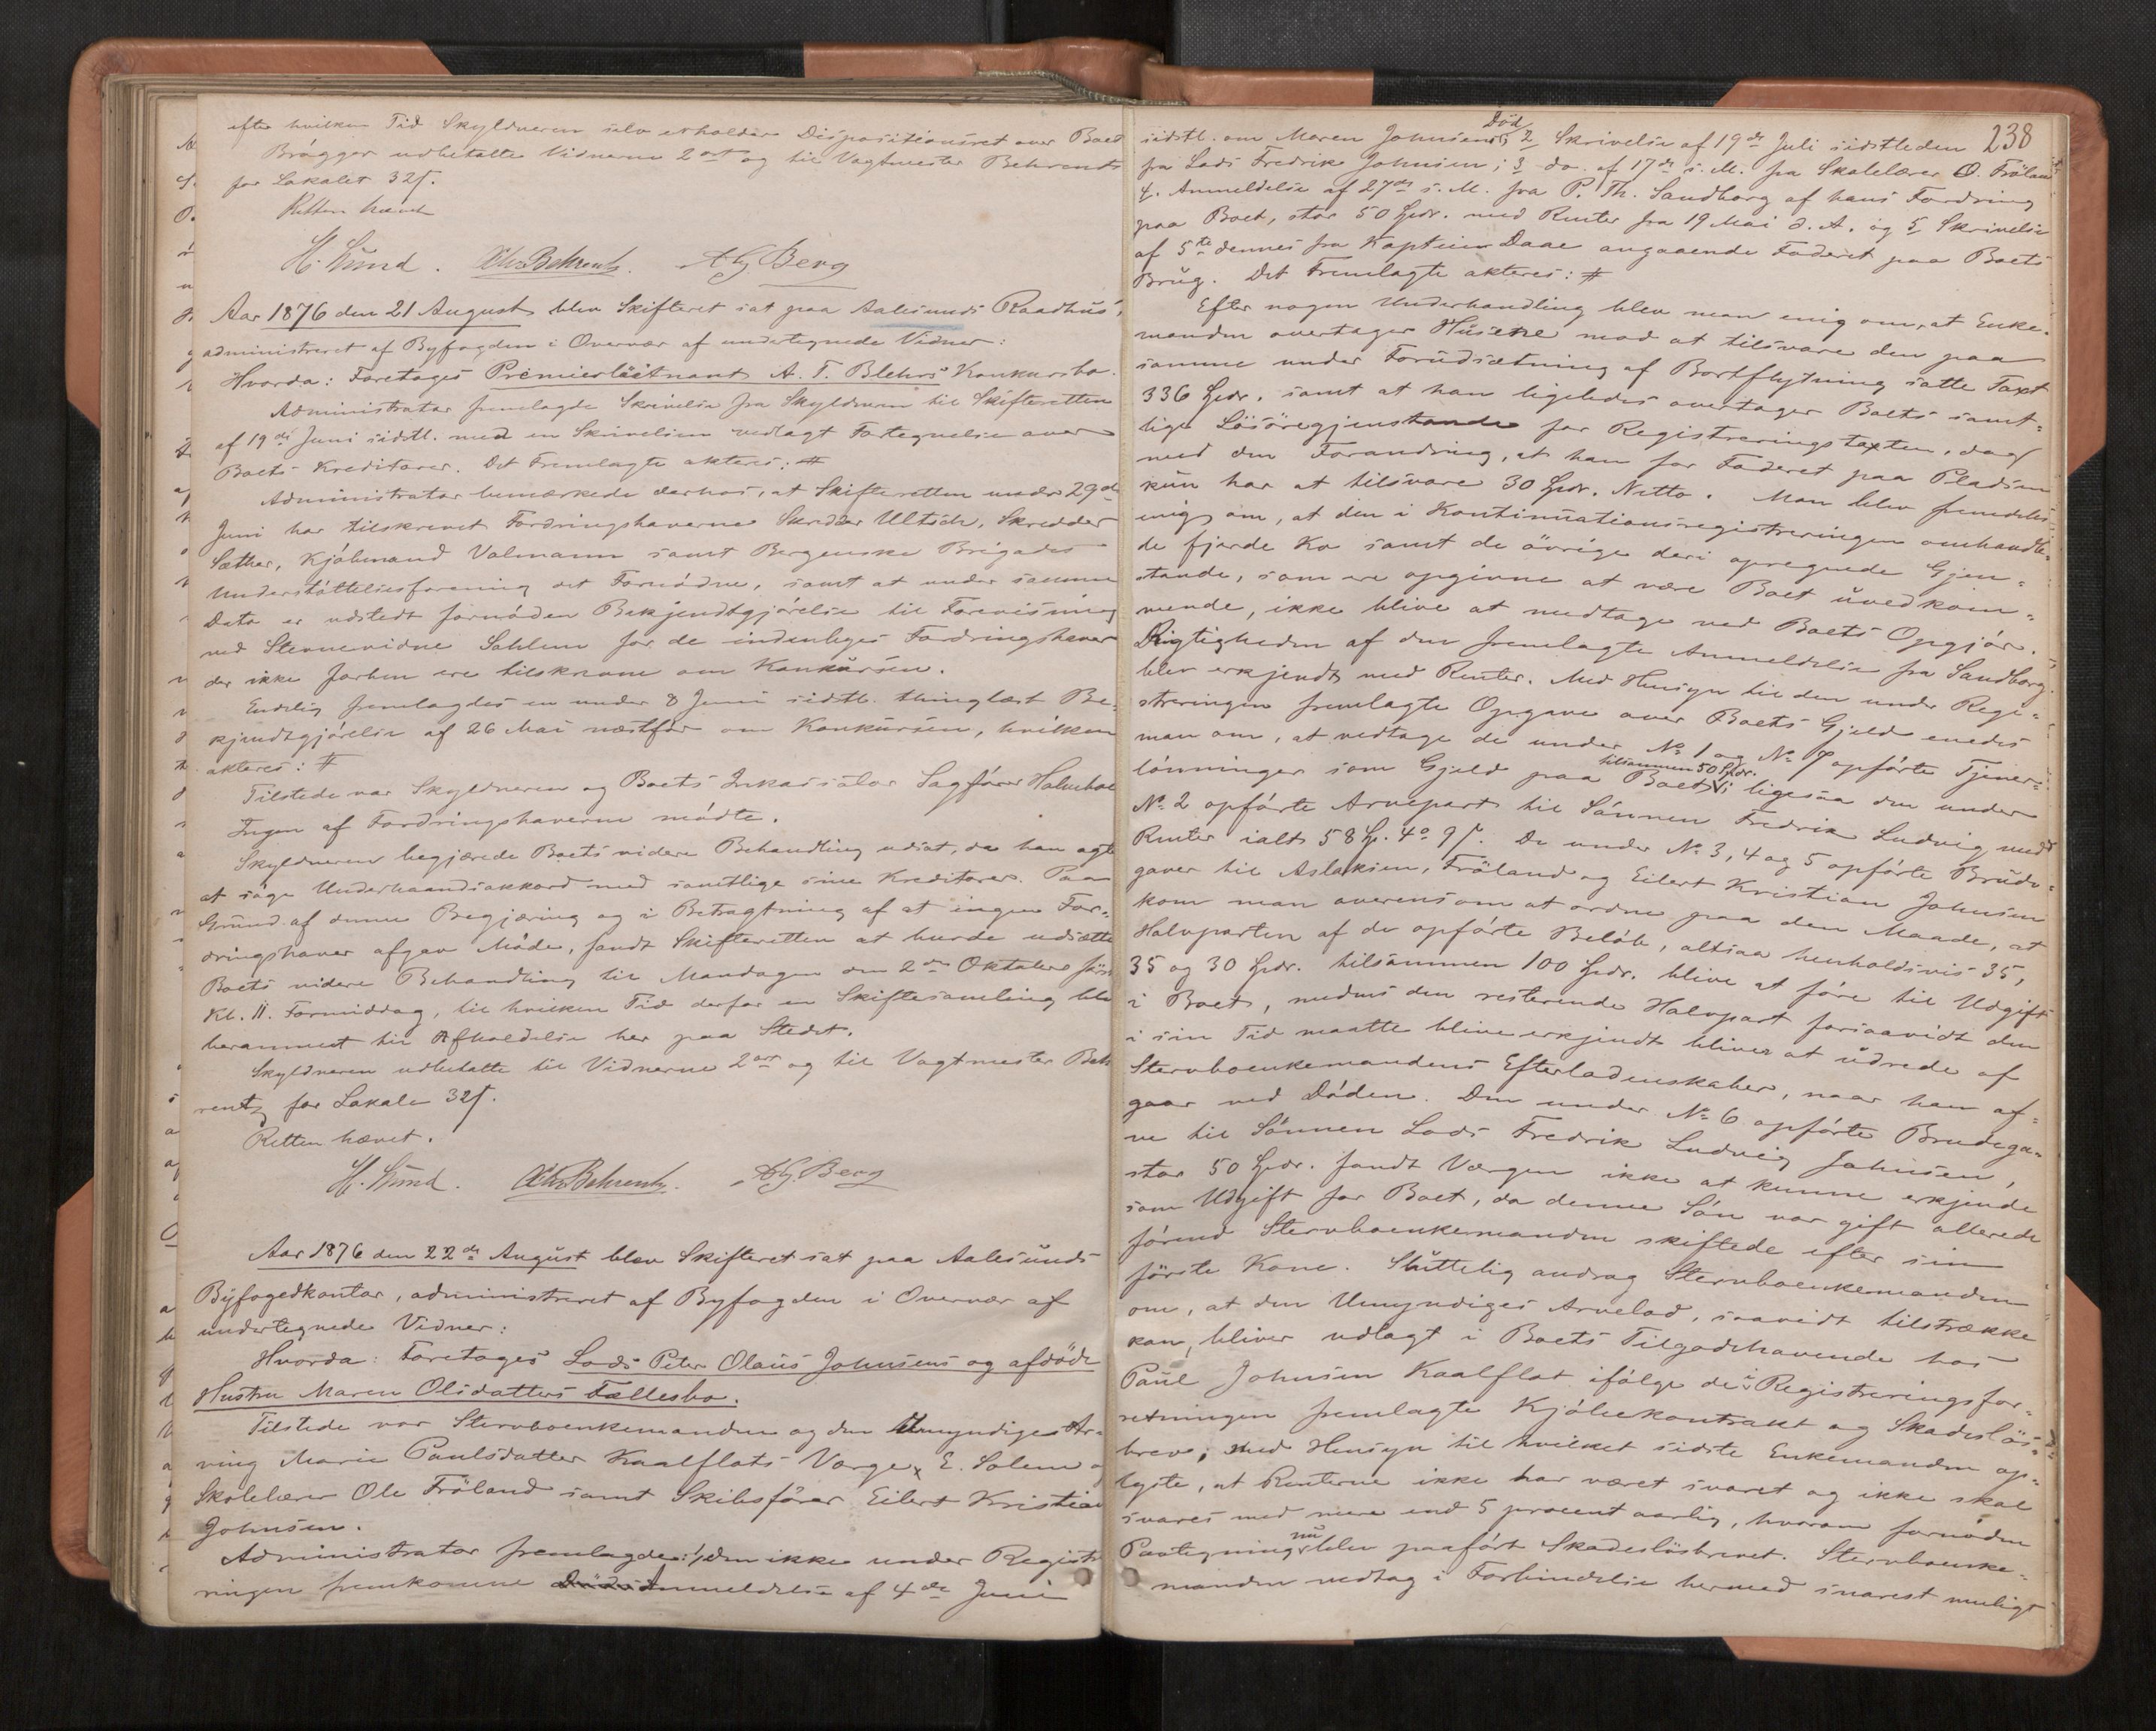 efter hvilken Tid Skyldneren selv erholder Dispositionsret over Boet
Brøgger udbetalte Vidnerne 2 ort og til Vagtmester Behrends
for Lokalet 32 s.
Retten hævet
H. Lund. Chr. Behrentz. A G Berg
Aar 1876 den 21 August blev Skifteret sat paa Aalesunds Raadhus,
administreret af Byfogden i Overvær af undertegnede Vidner:
Hvorda: Foretages Premierløitnant A. T. Blehrs Konkursbo.
Administrator fremlagde Skrivelse fra Skyldneren til Skifteretten
af 19de Juni sidstl. med en Skrivelsen vedlagt Fortegnelse over
Boets Kreditorer. Det Fremlagte akteres: #
Administrator bemærkede derhos, at Skifteretten under 29de
Juni har tilskrevet Fordringshaverne Skrædder Ultsch, Skredder
Sæther, Kjøbmand Volmann samt Bergenske Brigades
Understøttelsesforening det Fornødne, samt at under samme
Dato er udstedt fornøden Bekjendtgjørelse til Forevisning
ved Stevnevidne Sahlem for de indenbyes Fordringshaver
der ikke forhen ere tilskrevne om Konkursen.
Endelig fremlagdes en under 8 Juni sidstl. thinglæst Be-
kjendtgjørelse af 26 Mai næstfør om Konkursen, hvilken
akteres: #
Tilstede var Skyldneren og Boets Inkassator Sagfører Holmboe
Ingen af Fordringshaverne mødte.
Skyldneren begjærede Boets videre Behandling udsat, da han agte
at søge Underhaandsakkord med samtlige sine Kreditorer. Paa
Grund af denne Begjæring og i Betragtning af at ingen For-
dringshaver afgav Møde, fandt Skifteretten at burde udsætte
Boets videre Behandling til Mandagen den 2den Oktober først
Kl. 11. Formiddag, til hvilken Tid derfor en Skiftesamling blev
berammet til Afholdelse her paa Stedet.
Skyldneren udbetalte til Vidnerne 2 ort og til Vagtmester Beh
rentz for Lokale 32 s.
Retten hævet.
H. Lund. Chr. Behrentz. A G Berg
Aar 1876 den 22de August blev Skifteret sat paa Aalesunds
Byfogedkontor, administreret af Byfogden i Overvær af
undertegnede Vidner:
Hvorda: Foretages Lods Peter Olaus Johnsens og afdøde
Hustru Maren Olsdatters Fællesbo.
Tilstede var Stervboenkemanden og den Umyndige Ar-
ving Marie Paulsdatter Kaalflots Værge, E. Solem og
Skolelærer Ole Frøland samt Skibsfører Eilert Kristian
Johnsen.
Administrator fremlagde: 1, den ikke under Registre
ringen fremkomne Dødsanmeldelse af 4de Juni
238
sidstl. om Maren Johnsens Død, 2 Skrivelse af 19de Juli sidstleden
fra Lods Fredrik Johnsen; 3 do. af 17de s. M. fra Skolelærer O. Frøland
4. Anmeldelse af 27de s. M. fra P. Th. Sandborg af hans Fordring
paa Boet, stor 50 Spdr. med Renter fra 19 Mai d. A. og 5 Skrivelse
af 5te dennes fra Kaptein Daae angaaende Foderet paa Boets
Brug. Det Fremlagte akteres: #
Efter nogen Underhandling blev man enig om, at Enke-
manden overtager Husene mod at tilsvare den paa
samme under Forudsætning af Bortflytning satte Taxt
336 Spdr. samt at han ligeledes overtager Boets samt-
lige Løsøregjenstande for Registreringstaxten, dog
med den Forandring, at han for Foderet paa Pladsen
kun har at tilsvare 30 Spdr. Netto. Man blev fremdeles
enig om, at den i Kontinuationsregistreringen omhandle-
de fjerde Ko samt de øvrige deri opregnede Gjen-
stande, som ere opgivne at være Boet uvedkom-
mende, ikke blive at medtage ved Boets Opgjør.
Rigtigheden af den fremlagte Anmeldelse fra Sandborg
blev erkjendt med Renter. Med Hensyn til den under Regi-
streringen fremlagte Opgave over Boets Gjeld enedes
man om, at vedtage de under No 1 og No 7 opførte Tjener-
lønninger som Gjeld paa Boet tilsammen 50 Spdr.; ligesaa den under
No 2 opførte Arvepart til Sønnen Fredrik Ludvig med
Renter ialt 58 Sp. 4 o 9 s. De under No 3, 4 og 5 opførte Brude-
gaver til Aslaksen, Frøland og Eilert Kristian Johnsen
kom man overens om at ordne paa den Maade, at
Halvparten af de opførte Beløb, altsaa henholdsvis 35,
35 og 30 Spdr. tilsammen 100 Spdr. blive at føre til Udgift
i Boet, medens den resterende Halvpart forsaavidt den
i sin Tid maatte blive erkjendt bliver at udrede af
Stervboenkemandens Efterladenskaber, naar han af-
gaar ved Døden. Den under No 6 opførte Brudega-
ve til Sønnen Lods Fredrik Ludvig Johnsen,
stor 50 Spdr. fandt Værgen ikke at kunne erkjende
som Udgift for Boet, da denne Søn var gift allerede
førend Stervboenkemanden skiftede efter sin
første Kone. Sluttelig androg Stervboenkemanden
om, at den Umyndiges Arvelod, saavidt tilstrække
kan, bliver udlagt i Boets Tilgodehavende hos
Paul Johnsen Kaalflot ifølge de i Registreringsfor-
retningen fremlagte Kjøbekontrakt og Skadesløs-
brev; med Hensyn til hvilket sidste Enkemanden op-
lyste, at Renterne ikke har været svaret og ikke skal
svares med mere end 5 procent aarlig, hvorom fornøden
Paategning nu blev paaført Skadesløsbrevet. Stervboenke-
manden vedtog i Forbindelse hermed snarest muligt